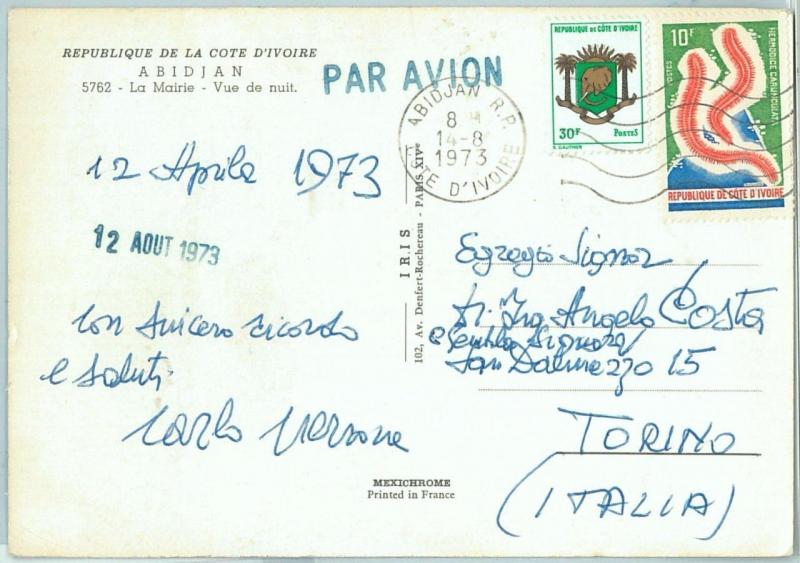 REPUBLIQUE DE LA COTE D'IVOIRE
ABIDJAN
5762 - La Mairie - Vue de nuit.
PAR AVION
ABIDJAN R.P.
8 H
14-8
1973
COTE D'IVOIRE
REPUBLIQUE DE CÔTE D'IVOIRE
30F POSTES
S. GAUTHIER
10F
POSTES
HERMODICE CARUNCULATA
REPUBLIQUE DE CÔTE D'IVOIRE
12 Aprile 1973
12 AOUT 1973
con sincero ricordo
e saluti
Carlo
102, Av. Denfert-Rochereau - PARIS XIVe
IRIS
Egregio Signor
Dr. Ing Angelo Costa
e Gentile Signora
San Dalmazzo 15
TORINO
(ITALIA)
MEXICHROME
Printed in France